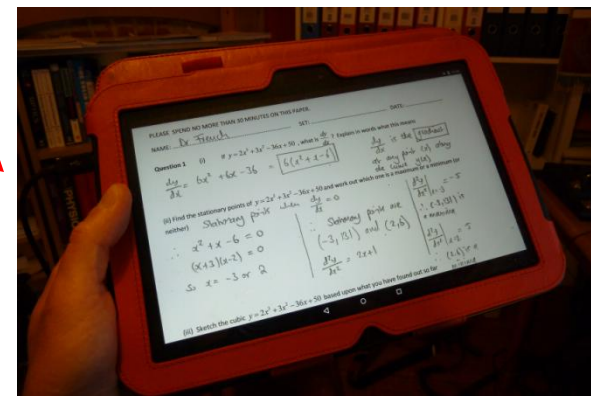 PLEASE SPEND NO MORE THAN 30 MINUTES ON THIS PAPER.
NAME: Dr French SET: DATE:
Question 1 (i) If y = 2x³ + 3x² − 36x + 50, what is dy/dx ? Explain in words what this means
dy/dx = 6x² + 6x − 36 = 6(x² + x − 6)
dy/dx is the gradient
at any point (x) along
the curve y(x)
(ii) Find the stationary points of y = 2x³ + 3x² − 36x + 50 and work out which one is a maximum or a minimum (or
neither)
Stationary points when dy/dx = 0
∴ x² + x − 6 = 0
(x+3)(x−2) = 0
So x = −3 or 2
∴ Stationary points are
(−3, 131) and (2, 6)
d²y/dx² = 2x+1
d²y/dx²|x=−3 = −5
∴ (−3, 131) is
a maximum
d²y/dx²|x=2 = 5
∴ (2,6) is a
minimum
(iii) Sketch the cubic y = 2x³ + 3x² − 36x + 50 based upon what you have found out so far